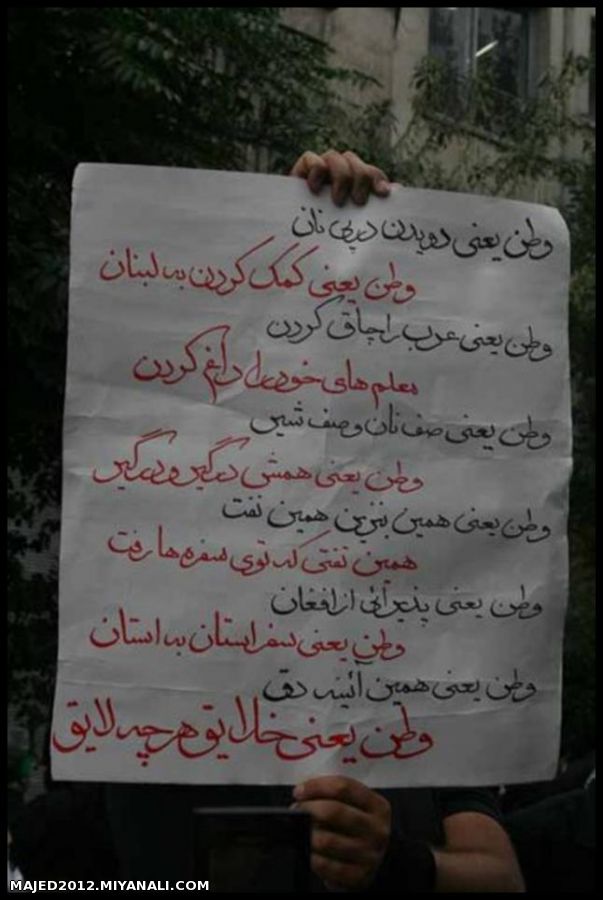 وطن یعنی دویدن در پی نان
وطن یعنی کمک کردن به لبنان
وطن یعنی عرب را چاق کردن
معلم های خود را داغ کردن
وطن یعنی صف نان و صف شیر
وطن یعنی همش درگیر و درگیر
وطن یعنی همین بنزین همین نفت
همین نفتی که توی سفره ها رفت
وطن یعنی پذیرائی از افغان
وطن یعنی سفر استان به استان
وطن یعنی همین آئینه دق
وطن یعنی خلایق هر چه لایق
MAJED2012.MIYANALI.COM